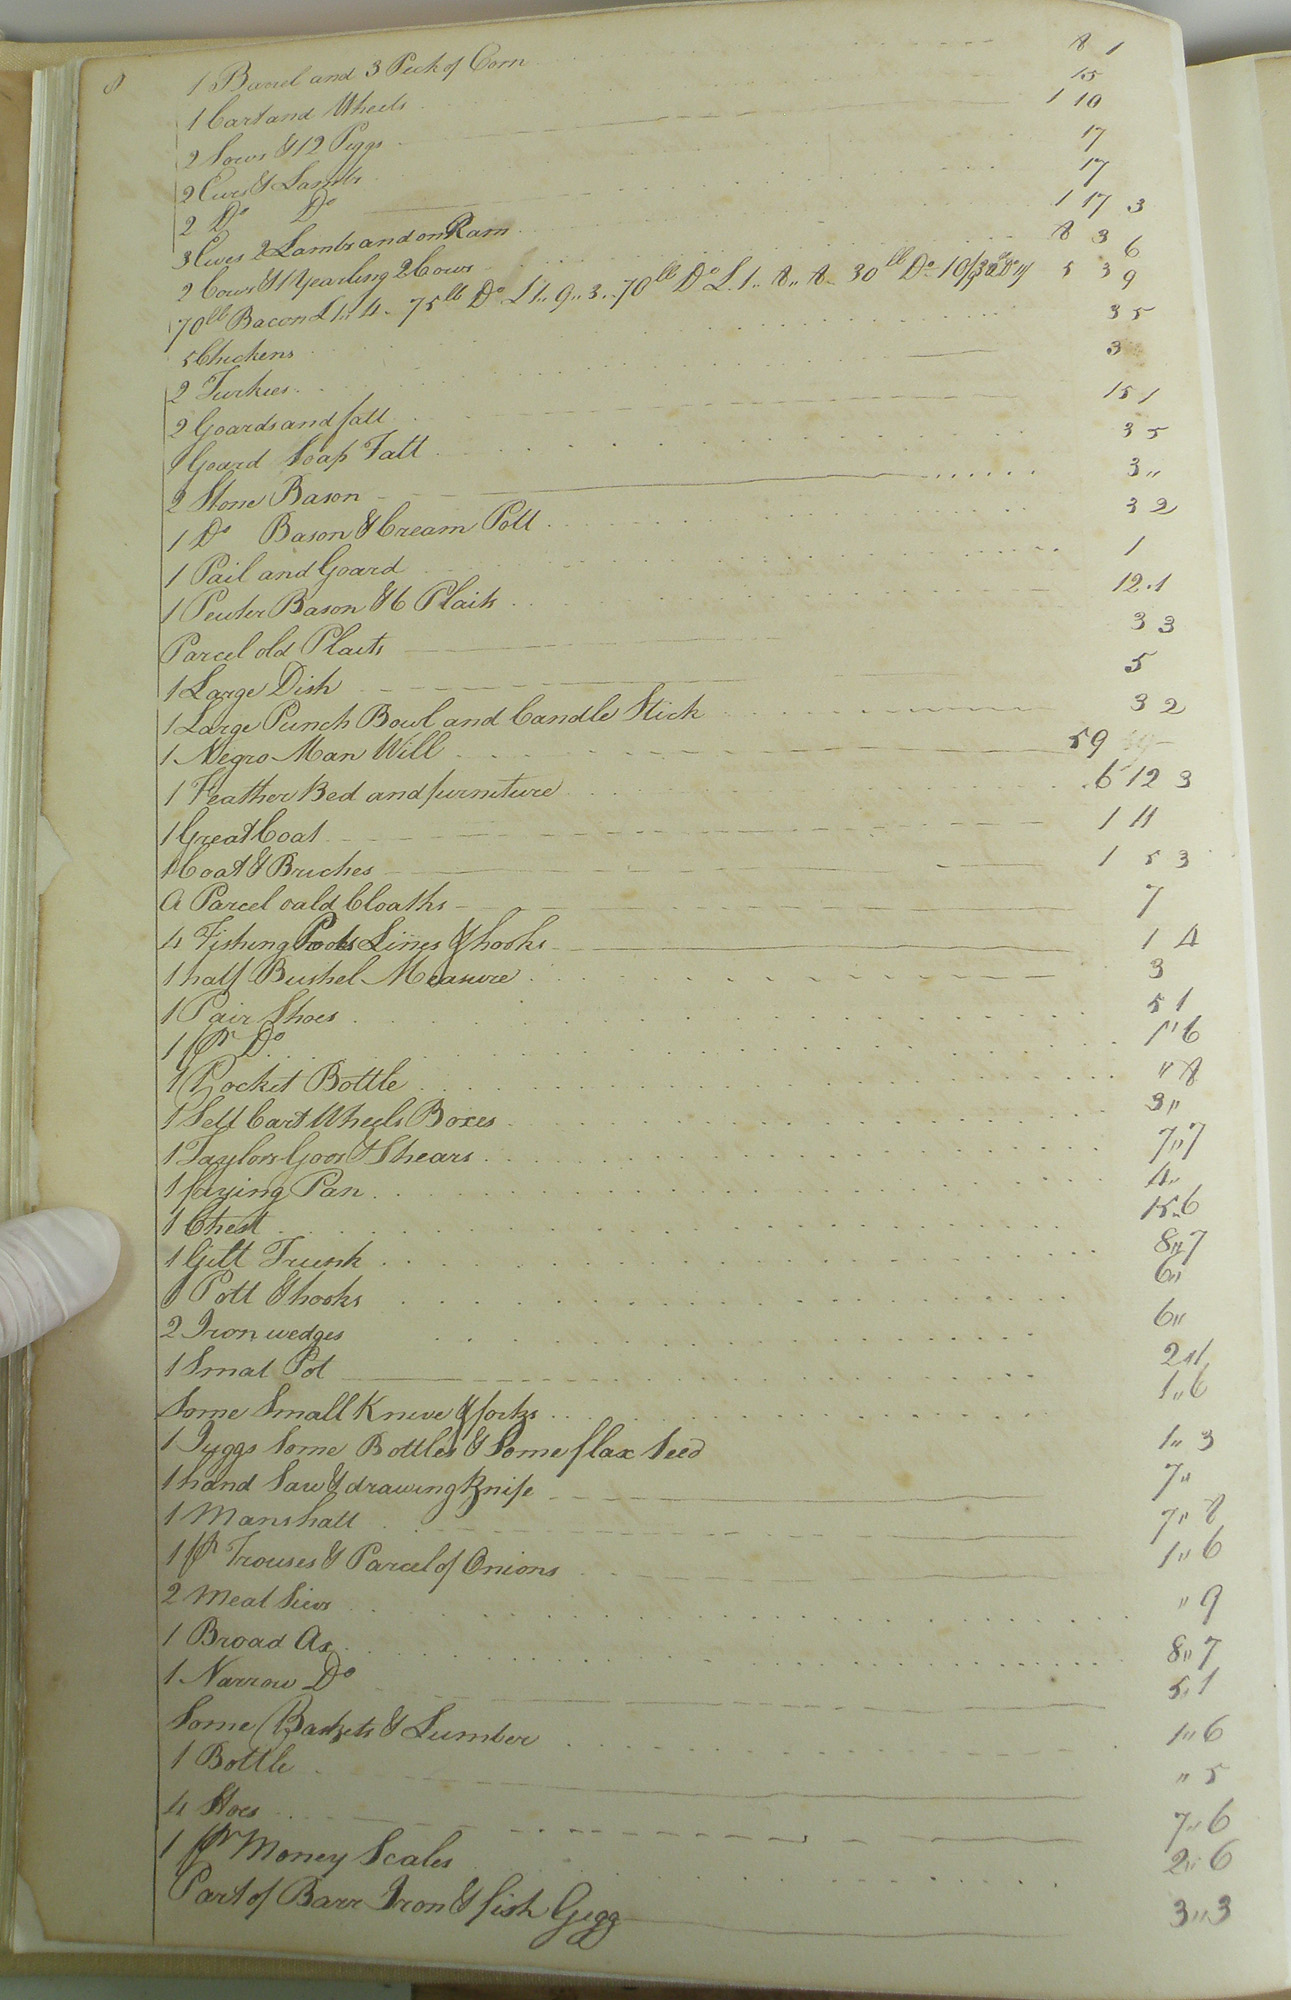 8 1 Barrel and 3 Peck of Corn 8 1
1 Cart and Wheels 15
2 Sows & 12 Piggs 1 10
2 Ews & Lambs 17
2 Do Do 17
3 Ewes 2 Lambs and on Ram 1 17 3
2 Cows & 1 Yearling 2 Cows 8 3 6
70lb Bacon £1" 4. 75lb Do £1" 9" 3. 70lb Do £. 1" 8" 8. 30lb Do 10/ 5 3 9
5 Chickens 3 5
2 Turkies 3
2 Goards and fatt 15 1
1 Goard Soap Fatt 3 5
2 Stone Bason 3"
1 Do Bason & Cream Pott 3 2
1 Pail and Goard 1
1 Pewter Bason & 6 Plaits 12.1
Parcel old Plaits 3 3
1 Large Dish 5
1 Large Punch Bowl and Candle Stick 3 2
1 Negro Man Will 59
1 Feather Bed and furniture 6 12 3
1 Great Coat 1 11
1 Coat & Briches 1 5 3
A Parcel oald Cloaths 7
4 Fishing Lines & hooks 1 4
1 half Bushel Measure 3
1 Pair Shoes 5 1
1 pr Do 1" 6
1 Pocket Bottle " 8
1 Sett Cart Wheels Boxes 3"
1 Taylors Goos & Shears 7" 7
1 frying Pan 4"
1 Chest 15" 6
1 Gilt Trunk 8" 7
1 Pott & hooks 6"
2 Iron wedges 6"
1 Smal Pot 2" 1
Some Small Knive & forks 1" 6
1 Juggs Some Bottles & Some flax Seed 1" 3
1 hand Saw & drawing Knife 7"
1 Mans hatt 7" 8
1 pr Trouses & Parcel of Onions 1" 6
2 Meal Sievs " 9
1 Broad Ax 8" 7
1 Narrow Do 5" 1
Some Baskets & Lumber 1" 6
1 Bottle " 5
4 Hoes 7" 6
1 pr Money Scales 2" 6
Part of Barr Iron & fish Gigg 3" 3